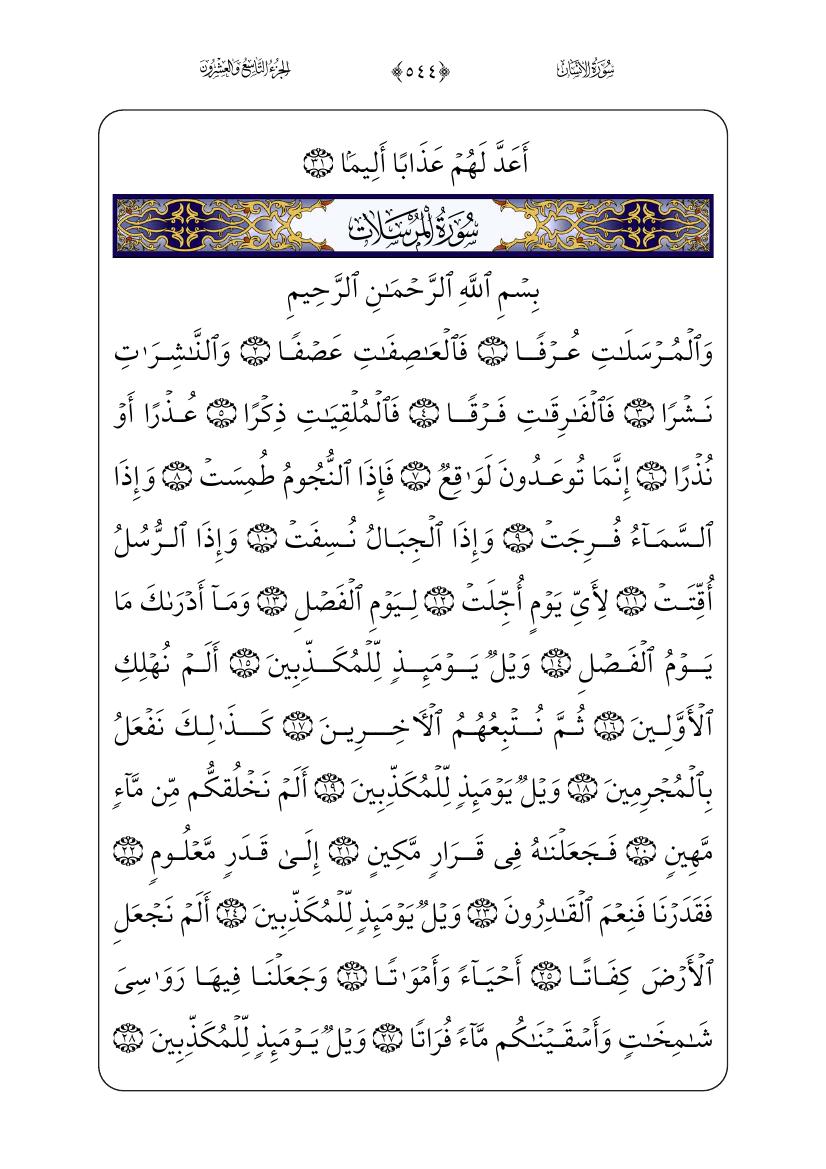 سُورَةُ الْإِنْسَانِ
﴿٥٤٤﴾
الجُزْءُ التَّاسِعُ وَالعِشْرُونَ
أَعَدَّ لَهُمۡ عَذَابًا أَلِيمَۢا ٣١
سُورَةُ الْمُرْسَلَاتِ
بِسۡمِ ٱللَّهِ ٱلرَّحۡمَٰنِ ٱلرَّحِيمِ
وَٱلۡمُرۡسَلَٰتِ عُرۡفٗا ١ فَٱلۡعَٰصِفَٰتِ عَصۡفٗا ٢ وَٱلنَّٰشِرَٰتِ
نَشۡرٗا ٣ فَٱلۡفَٰرِقَٰتِ فَرۡقٗا ٤ فَٱلۡمُلۡقِيَٰتِ ذِكۡرًا ٥ عُذۡرًا أَوۡ
نُذۡرًا ٦ إِنَّمَا تُوعَدُونَ لَوَٰقِعٞ ٧ فَإِذَا ٱلنُّجُومُ طُمِسَتۡ ٨ وَإِذَا
ٱلسَّمَآءُ فُرِجَتۡ ٩ وَإِذَا ٱلۡجِبَالُ نُسِفَتۡ ١٠ وَإِذَا ٱلرُّسُلُ
أُقِّتَتۡ ١١ لِأَيِّ يَوۡمٍ أُجِّلَتۡ ١٢ لِيَوۡمِ ٱلۡفَصۡلِ ١٣ وَمَآ أَدۡرَىٰكَ مَا
يَوۡمُ ٱلۡفَصۡلِ ١٤ وَيۡلٞ يَوۡمَئِذٖ لِّلۡمُكَذِّبِينَ ١٥ أَلَمۡ نُهۡلِكِ
ٱلۡأَوَّلِينَ ١٦ ثُمَّ نُتۡبِعُهُمُ ٱلۡأٓخِرِينَ ١٧ كَذَٰلِكَ نَفۡعَلُ
بِٱلۡمُجۡرِمِينَ ١٨ وَيۡلٞ يَوۡمَئِذٖ لِّلۡمُكَذِّبِينَ ١٩ أَلَمۡ نَخۡلُقكُّم مِّن مَّآءٖ
مَّهِينٖ ٢٠ فَجَعَلۡنَٰهُ فِي قَرَارٖ مَّكِينٍ ٢١ إِلَىٰ قَدَرٖ مَّعۡلُومٖ ٢٢
فَقَدَرۡنَا فَنِعۡمَ ٱلۡقَٰدِرُونَ ٢٣ وَيۡلٞ يَوۡمَئِذٖ لِّلۡمُكَذِّبِينَ ٢٤ أَلَمۡ نَجۡعَلِ
ٱلۡأَرۡضَ كِفَاتًا ٢٥ أَحۡيَآءٗ وَأَمۡوَٰتٗا ٢٦ وَجَعَلۡنَا فِيهَا رَوَٰسِيَ
شَٰمِخَٰتٖ وَأَسۡقَيۡنَٰكُم مَّآءٗ فُرَاتٗا ٢٧ وَيۡلٞ يَوۡمَئِذٖ لِّلۡمُكَذِّبِينَ ٢٨